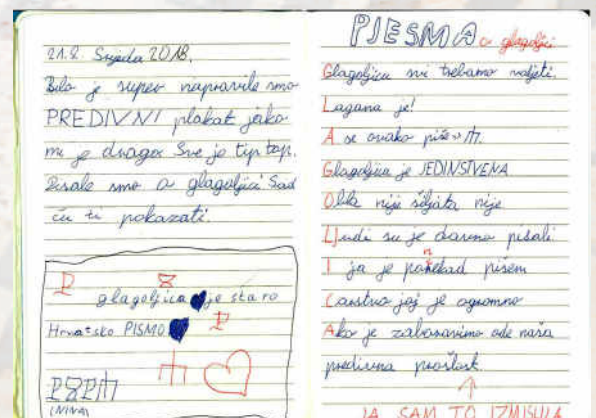 21.2. Srijeda 2018.
Bilo je super napravile smo
PREDIVNI plakat jako
mi je drago. Sve je tip top.
Pisale smo o glagoljici Sad
ću ti pokazati.
glagoljica je staro
Hrvatsko PISMO
(NINA)
PJESMA o glagoljici
Glagoljicu svi trebamo voljeti.
Lagana je!
A se ovako piše → Ⰰ.
Glagoljica je JEDINSTVENA
Obla nije šiljata nije
Ljudi su je davno pisali
I ja je ponekad pišem
Carstvo joj je ogromno
Ako je zaboravimo ode naša
predivna prošlost.
JA SAM TO IZMISLILA